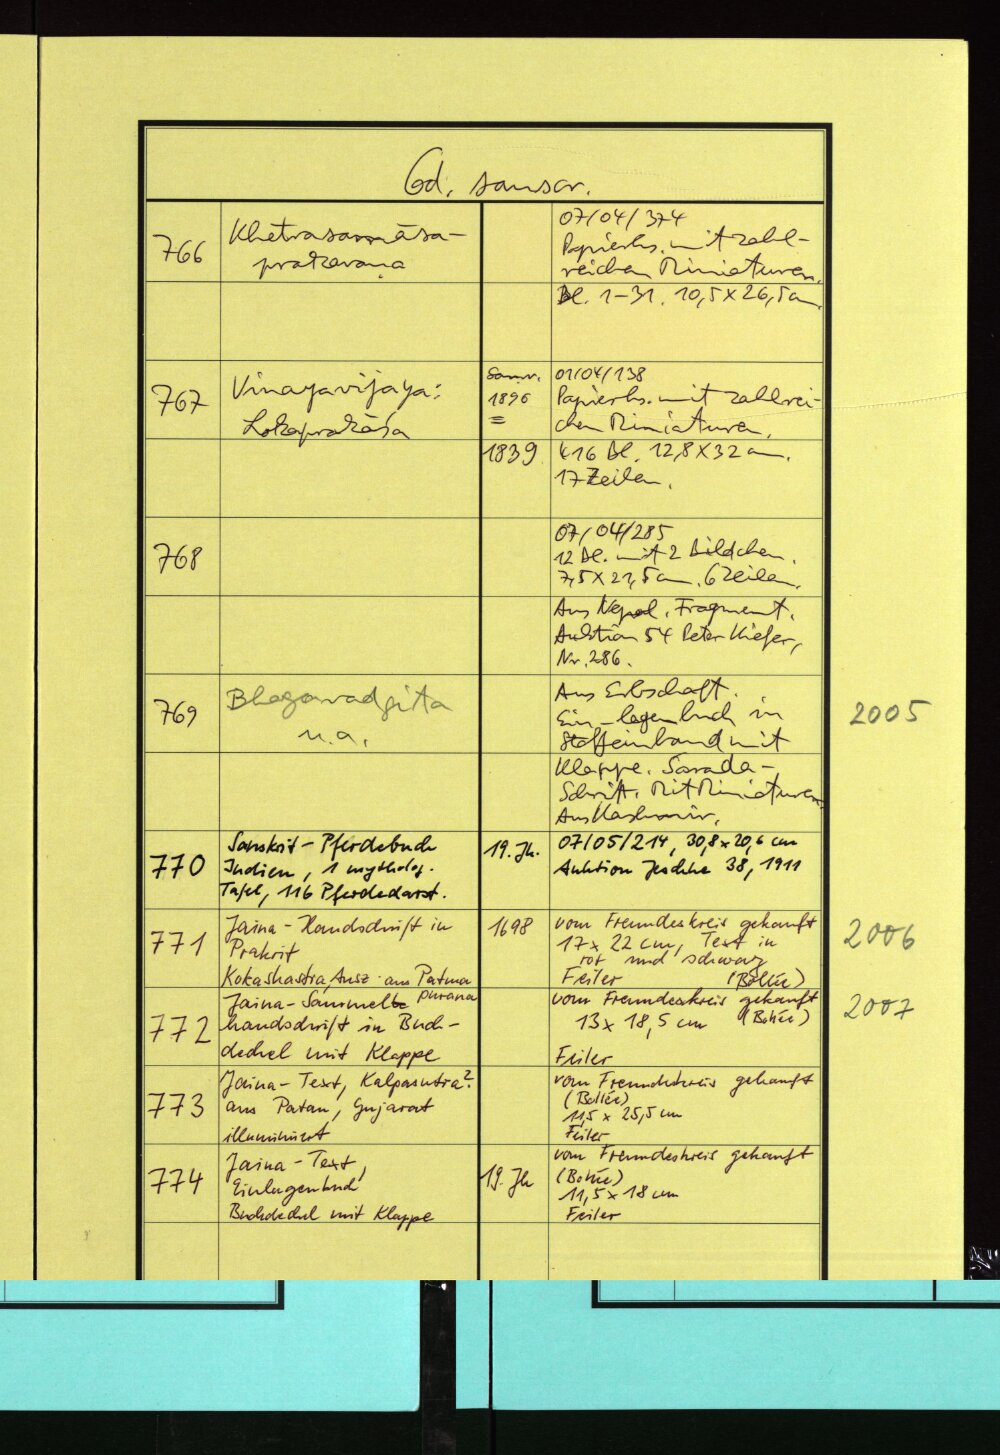 Cod. sanscr.
766
Khetrasamāsa-
prakaraṇa
07/04/374
Papierhs. mit zahl-
reichen Miniaturen.
Bl. 1-31. 10,5 x 26,5 cm.
767
Vinayavijaya:
Lokaprakāśa
Samv.
1896
=
1839
01/04/138
Papierhs. mit zahlrei-
chen Miniaturen.
416 Bl. 12,8 x 32 cm.
17 Zeilen.
768
07/04/285
12 Bl. mit 2 Bildchen.
7,5 x 21,5 cm. 6 Zeilen.
Aus Nepal. Fragment.
Auktion 54 Peter Kiefer,
Nr. 286.
769
Bhagavadgita
u.a.
Aus Erbschaft.
Ein-lagenbuch in
Stoffeinband mit
Klappe. Sarada-
Schrift. Mit Miniaturen.
Aus Kashmir.
2005
770
Sanskrit-Pferdebuch
Indien, 1 mytholog.
Tafel, 116 Pferdedarst.
19. Jh.
07/05/214, 30,8 x 20,6 cm
Auktion Jeschke 38, 1911
771
Jaina-Handschrift in
Prakrit
Kokashastra, Ausz. aus Patma
purana
1698
vom Freundeskreis gekauft
17 x 22 cm, Text in
rot und schwarz
Feiler (Bollée)
2006
772
Jaina-Sammel-
handschrift in Buch-
deckel mit Klappe
vom Freundeskreis gekauft
13 x 18,5 cm (Bollée)
Feiler
2007
773
Jaina-Text, Kalpasutra?
aus Patan, Gujarat
illuminiert
vom Freundeskreis gekauft
(Bollée)
11,5 x 25,5 cm
Feiler
774
Jaina-Text,
Einlagenbuch
Buchdeckel mit Klappe
19. Jh
vom Freundeskreis gekauft
(Bollée)
11,5 x 18 cm
Feiler